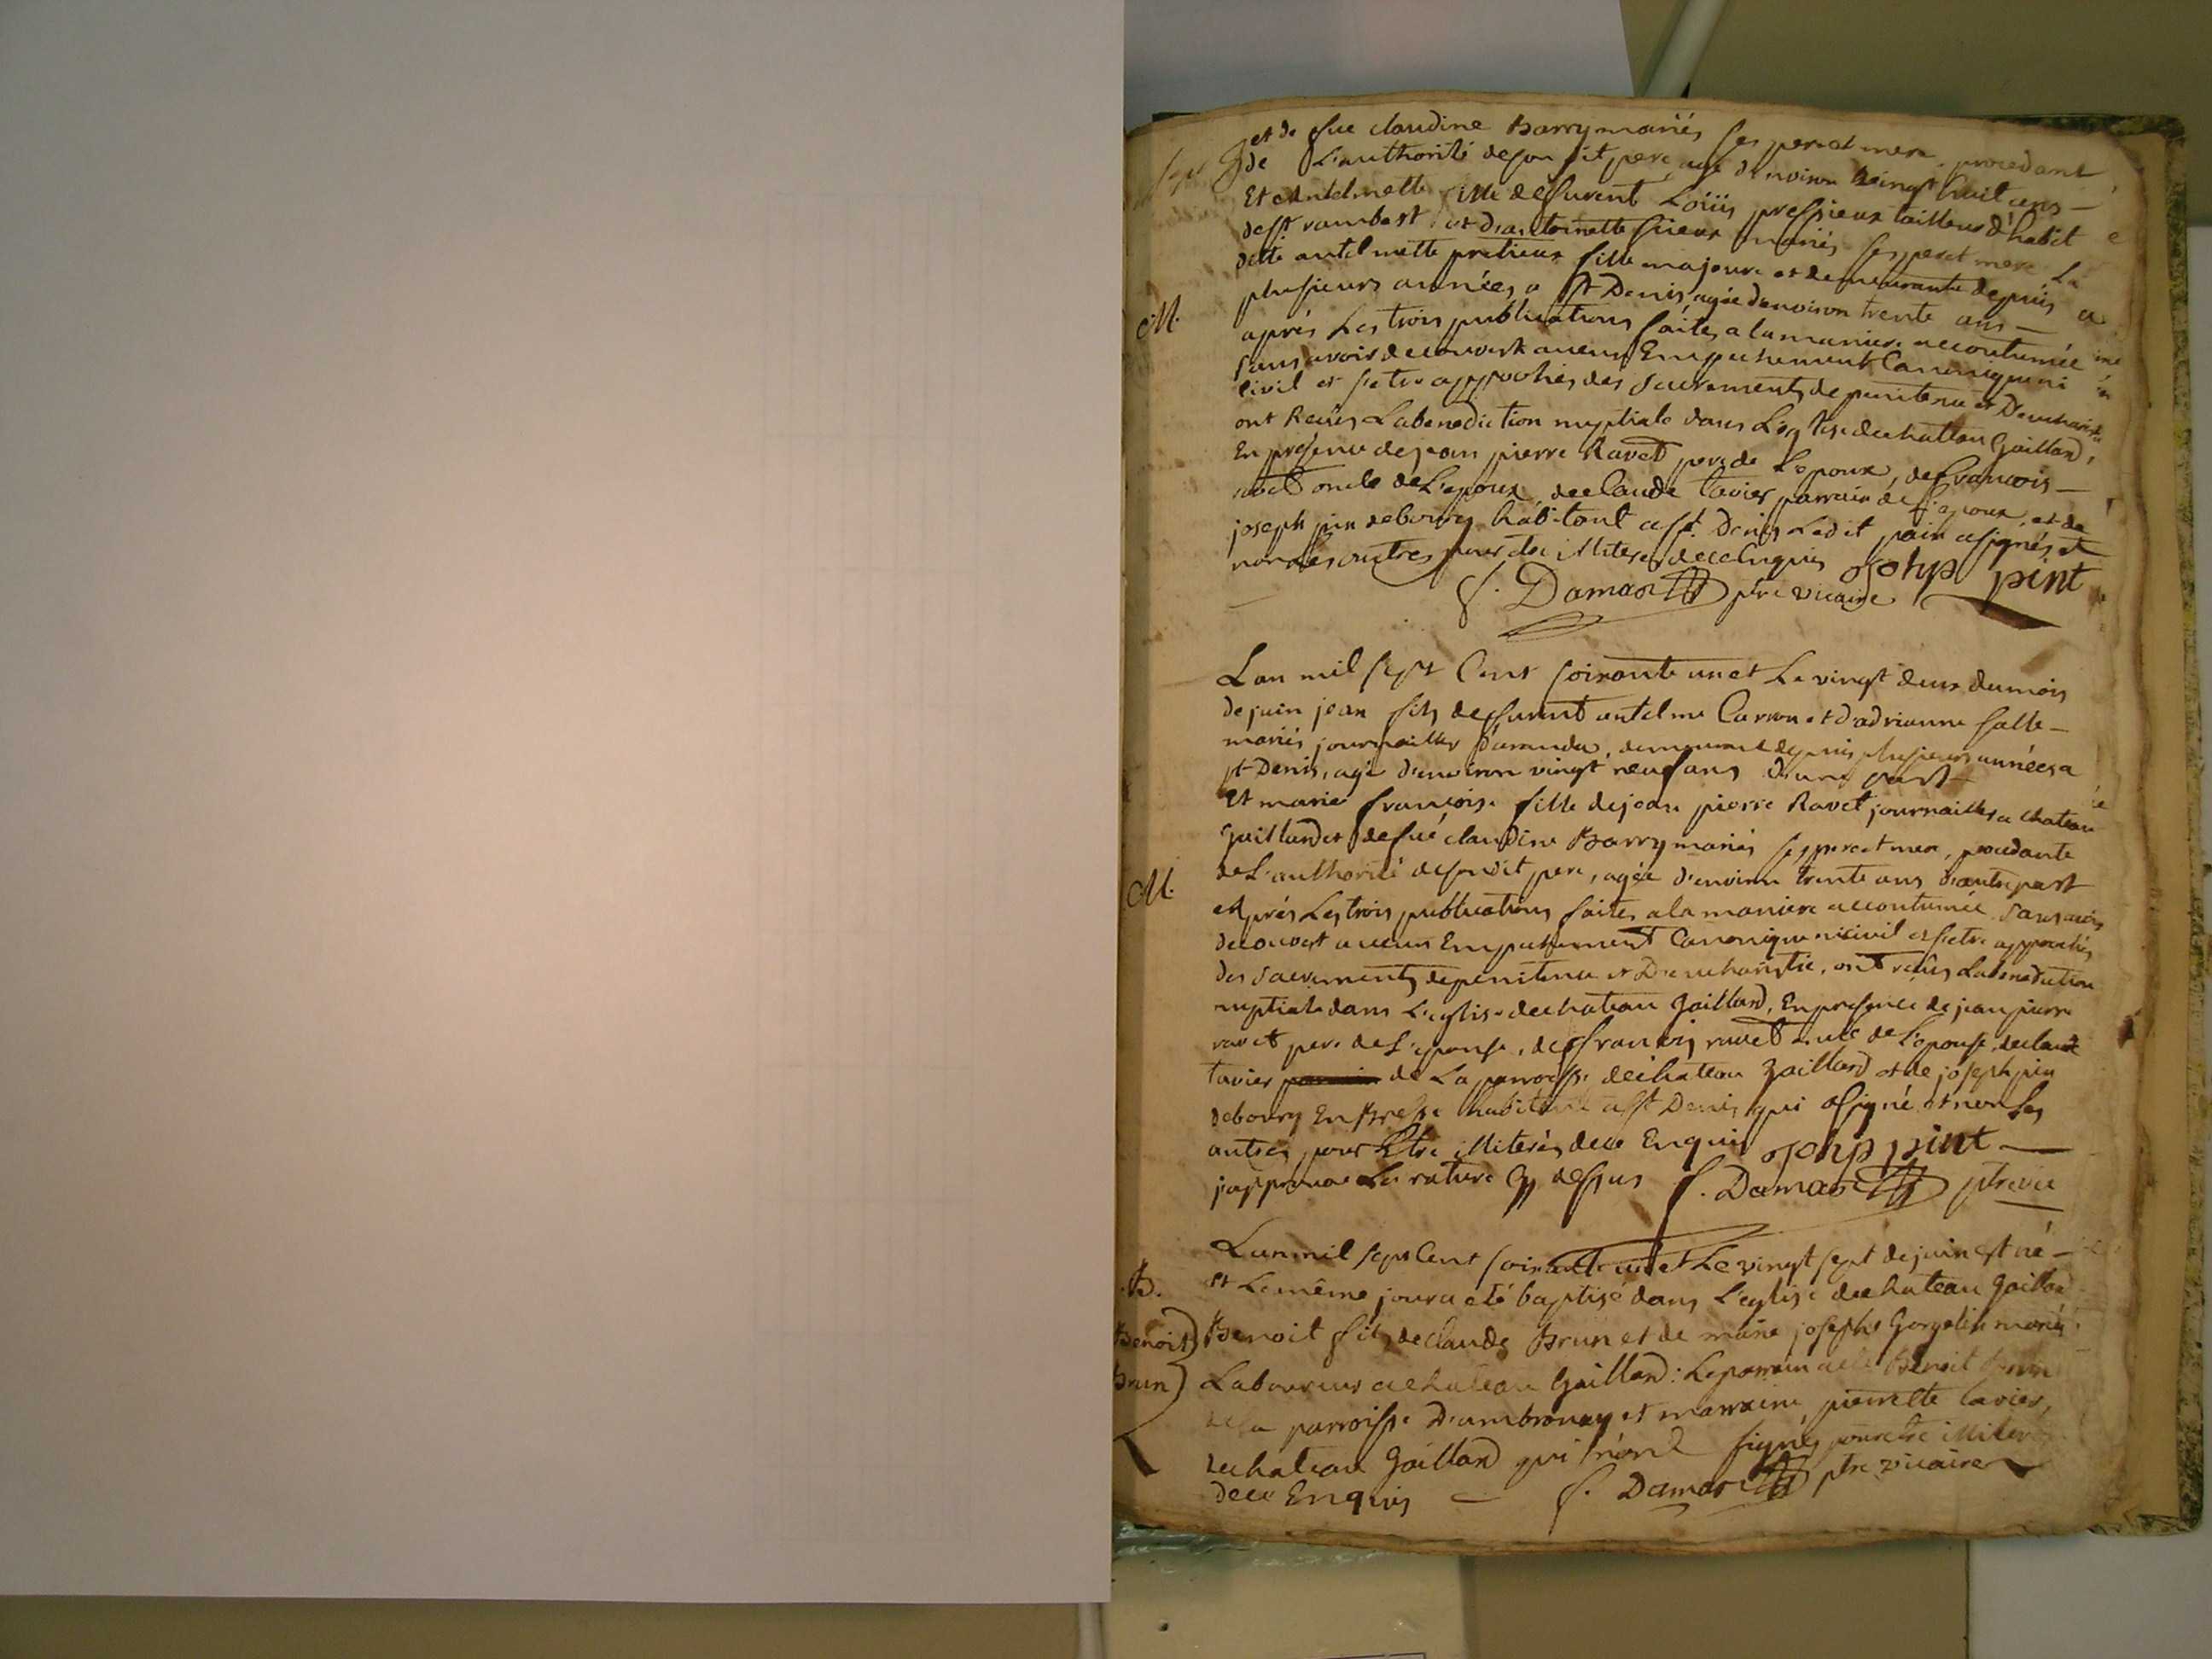 et de fue claudine Barry mariés ses pere et mere, procedant
de L'authorité de son dit pere, agé d'environ vingt huit ans —
Et Antelmette fille de furent Loüis pressieux tailleur d'habit
de st rambert, et d'antoinette mariés ses pere et mere La
dette antelmette pretieux fille majeure et demeurante depuis
plusieurs années a st Denis, agée denviron trente ans —
M.
aprés Les trois publications faites a la maniere accoutumée
sans avoir decouvert aucun Empechement Canonique ni
Civil et s'etre approchés des Sacrements de penitence et D'eucharistie
ont Reçûs La benediction nuptiale dans L'eglise de chateau Gaillard,
En presence de jean pierre Ravet pere de L'epoux, de francois —
ravet oncle de L'epoux, de claude tavier parrain de L'epoux, et de
joseph pin de bourg habitant a st Denis Ledit pain a signés et
non les autres pour etre illiteres de ce Enquis josehp pint
f. Damas ptre vicaire
Lan mil sept Cent soixante un et Le vingt deux du mois
de juin jean fils de furent antelme Carron et d'adrianne falle —
mariés journailler d'aranda, demeurant depuis plusieurs années a
st Denis, agé d'environ vingt neuf ans d'une part —
Et marie françoise fille de jean pierre Ravet journailler a chateau
Gaillard et de fuë claudine Barry mariés ses pere et mere, procedante
de L'authorité de son dit pere, agée d'environ trente ans d'autre part
M.
Aprés Les trois publications faites a la maniere accoutumée sans avoir
decouvert aucun Empechement Canonique ni civil et s'etre approchés
des Sacrements de penitence et D'eucharistie, ont reçûs La benediction
nuptiale dans L'eglise de chateau Gaillard, En presence de jean pierre
ravet pere de L'epouse, de francois ravet oncle de L'epouse, de claude
tavier parrain de La parroisse de chateau Gaillard et de joseph pin
de bourg En Bresse habitant a st Denis qui a signé et non Les
autres pour Etre illiterés de ce Enquis josehp pint —
j'approuve La rature cy dessus f. Damas ptre vic
Lan mil sept Cent soixante un et Le vingt sept de juin est né —
B.
et Le même jour a eté baptisé dans L'eglise de chateau Gaillard
Benoit
Benoit fils de claude Brun et de marie josephe Gorgelin mariés
Brun
Laboureur a chateau Gaillard: Le parrain a eté Benoit Brun
de la parroisse D'ambronay et marraine pierrette tavier,
de chateau Gaillard qui n'ont signés pour etre illiterés
de ce Enquis — f. Damas ptre vicaire